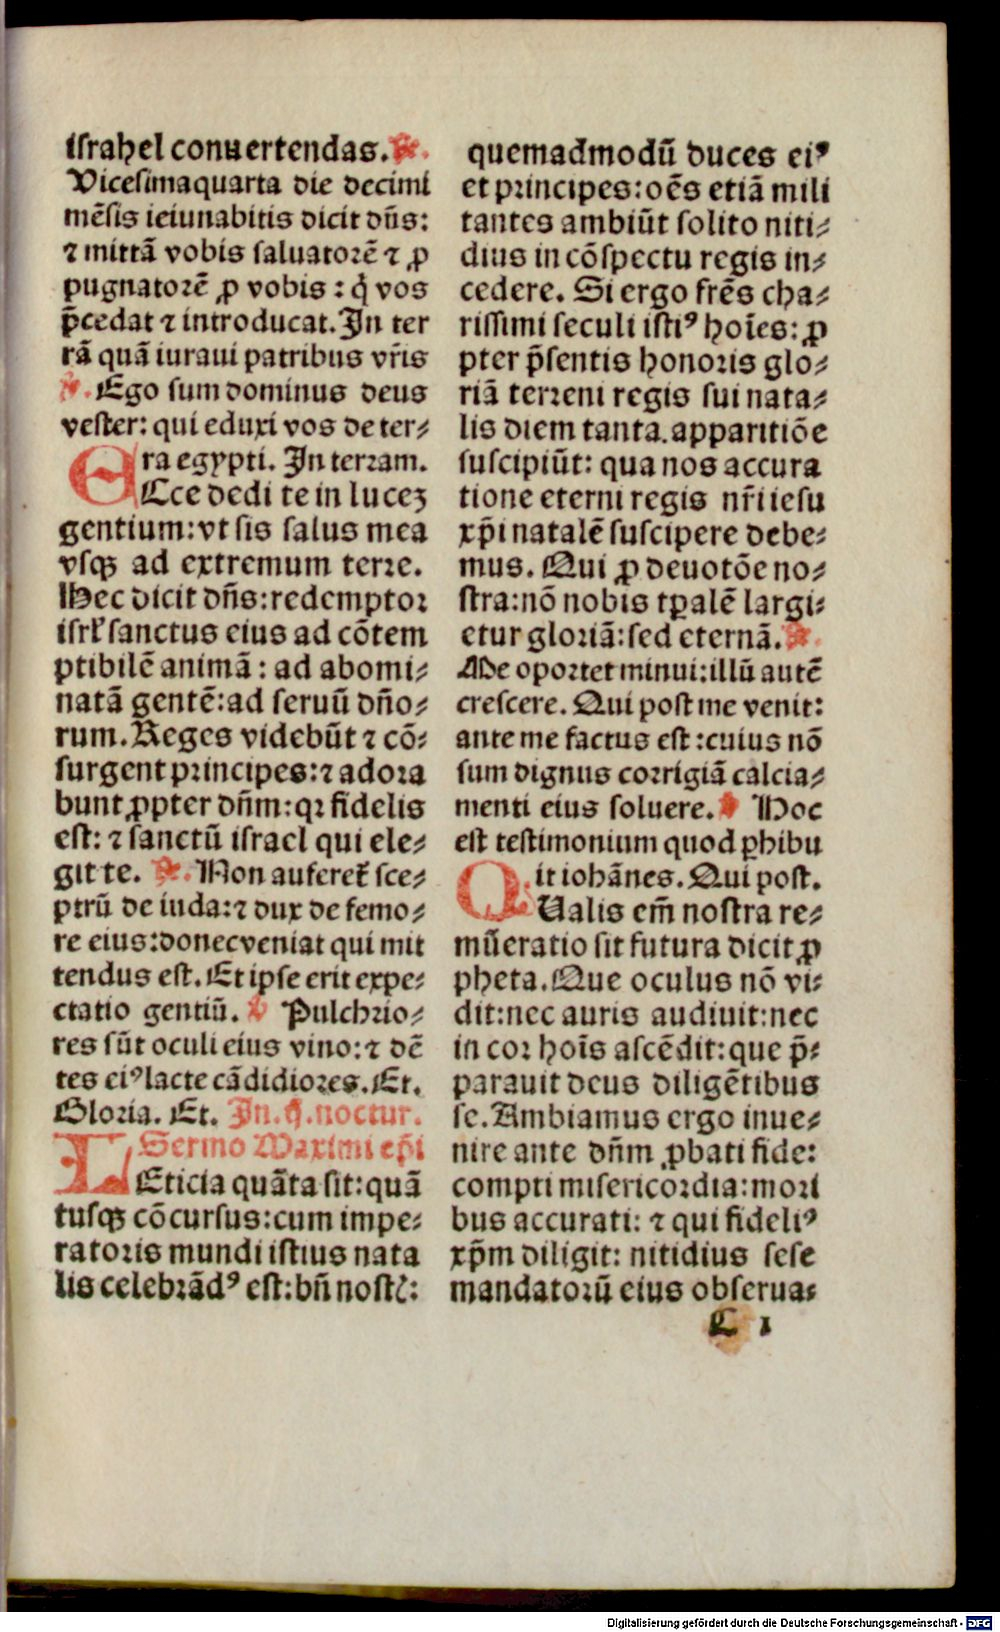 israhel conuertendas. ℟.
Vicesimaquarta die decimi
mēsis ieiunabitis dicit dn̄s:
⁊ mittā vobis saluatorē ⁊ ꝓ
pugnatorē ꝓ vobis: q̇ vos
p̄cedat ⁊ introducat. In ter
rā quā iuraui patribus vr̄is
℣. Ego sum dominus deus
vester: qui eduxi vos de ter⸗
ra egypti. In terram.
ECce dedi te in lucez
gentium: vt sis salus mea
vsqꝫ ad extremum terre.
Hec dicit dn̄s: redemptor
isrl̄ sanctus eius ad cōtem
ptibilē animā: ad abomi⸗
natā gentē: ad seruū dn̄o⸗
rum. Reges videbūt ⁊ cō⸗
surgent principes: ⁊ adora
bunt ꝓpter dn̄m: qꝛ fidelis
est: ⁊ sanctū israel qui ele⸗
git te. ℟. Non auferet̄ sce⸗
ptrū de iuda: ⁊ dux de femo⸗
re eius: donec veniat qui mit
tendus est. Et ipse erit expe⸗
ctatio gentiū. ℣ Pulchrio⸗
res sūt oculi eius vino: ⁊ dē
tes eiꝰ lacte cādidiores. Et.
Gloria. Et. In .ij. noctur.
Sermo Maximi ep̄i
LEticia quāta sit: quā
tusqꝫ cōcursus: cum impe⸗
ratoris mundi istius nata
lis celebrādꝰ est: bn̄ nostꝭ:
quemadmodū duces eiꝰ
et principes: oēs etiā mili
tantes ambiūt solito niti⸗
dius in cōspectu regis in⸗
cedere. Si ergo frēs cha⸗
rissimi seculi istiꝰ hoīes: ꝓ
pter p̄sentis honoris glo⸗
riā terreni regis sui nata⸗
lis diem tanta. apparitiōe
suscipiūt: qua nos accura
tione eterni regis nr̄i iesu
xp̄i natalē suscipere debe⸗
mus. Qui ꝓ deuotōe no⸗
stra: nō nobis tꝑalē largi⸗
etur gloriā: sed eternā. ℟.
Me oportet minui: illū autē
crescere. Qui post me venit:
ante me factus est: cuius nō
sum dignus corrigiā calcia⸗
menti eius soluere. ℣ Hoc
est testimonium quod ꝑhibu
it iohānes. Qui post.
QUalis em̄ nostra re⸗
mūeratio sit futura dicit ꝓ
pheta. Que oculus nō vi⸗
dit: nec auris audiuit: nec
in cor hoīs ascēdit: que p̄⸗
parauit deus diligētibus
se. Ambiamus ergo inue⸗
nire ante dn̄m ꝓbati fide:
compti misericordia: mori
bus accurati: ⁊ qui fideliꝰ
xp̄m diligit: nitidius sese
mandatorū eius obserua⸗
C 1
Digitalisierung gefördert durch die Deutsche Forschungsgemeinschaft - DFG